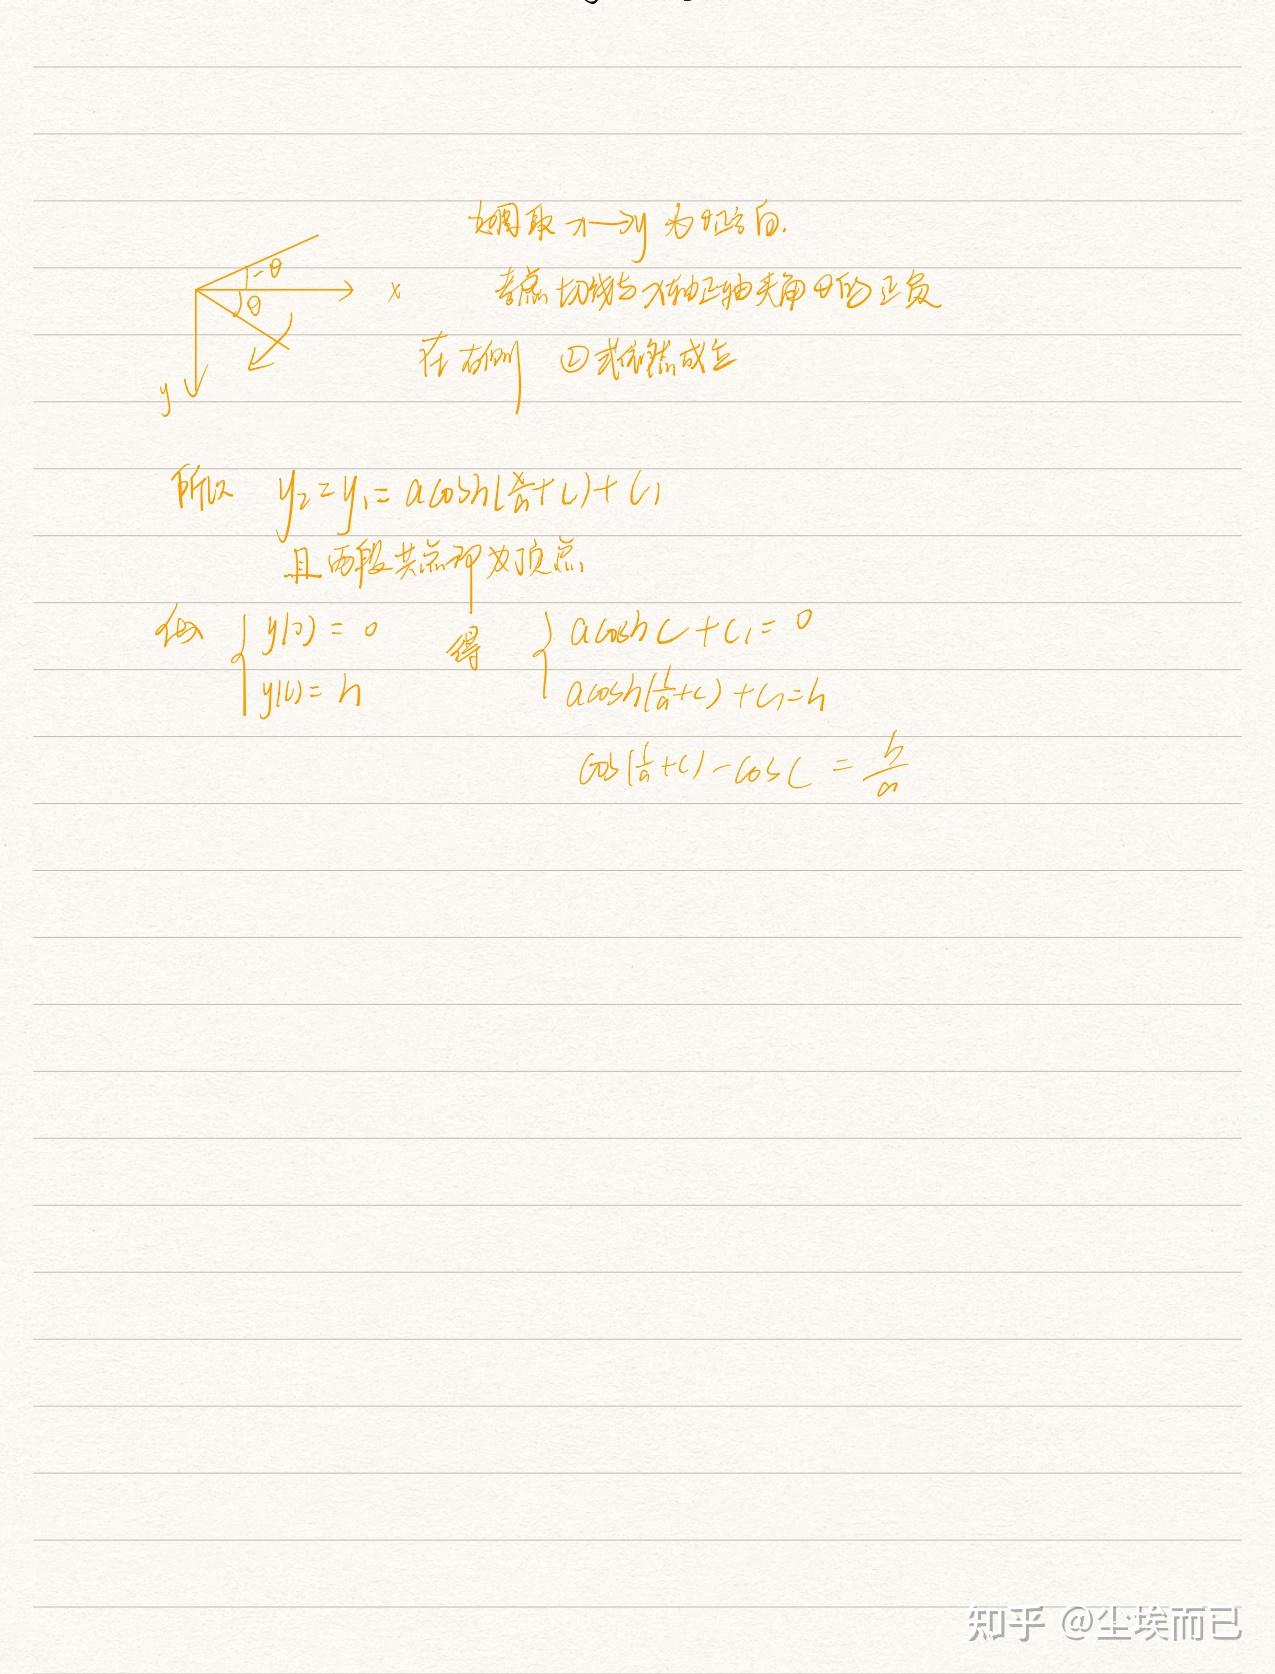 如图取 x→y 为正方向.
-θ
θ
x
考虑切线与x轴正轴夹角θ的正负
在右侧 ①式依然成立
y
所以 y₂=y₁=a cosh(x/a+C)+C₁
且两段共点即为顶点
y(0)=0 得 a cosh C+C₁=0
y(L)=h a cosh(L/a+C)+C₁=h
cos(L/a+C)-cos C=h/a
知乎 @尘埃而已